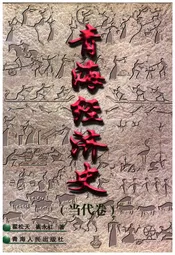 青海经济史
（当代卷）
翟松天 崔永红 著
青海人民出版社